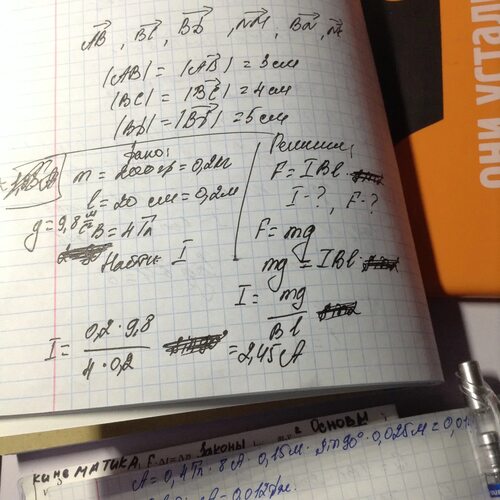 AB, BC, BD, NM, BA, N
|AB| = |AB| = 3 см
|BC| = |BC| = 4 см
|BD| = |BD| = 5 см
Дано:
m = 200 гр = 0,2 кг
l = 20 см = 0,2 м
g = 9,8 м/с²
B = 4 Тл
Найти: I
Решение:
F = IBl
I - ?, F - ?
F = mg
mg = IBl
I = mg / Bl
I = 0,2 · 9,8 / 4 · 0,2 = 2,45 А
ОНИ
кинематика
законы
Основы
A = 0,4 Тл · 8 А · 0,15 м · sin90° · 0,025 м = 0,01